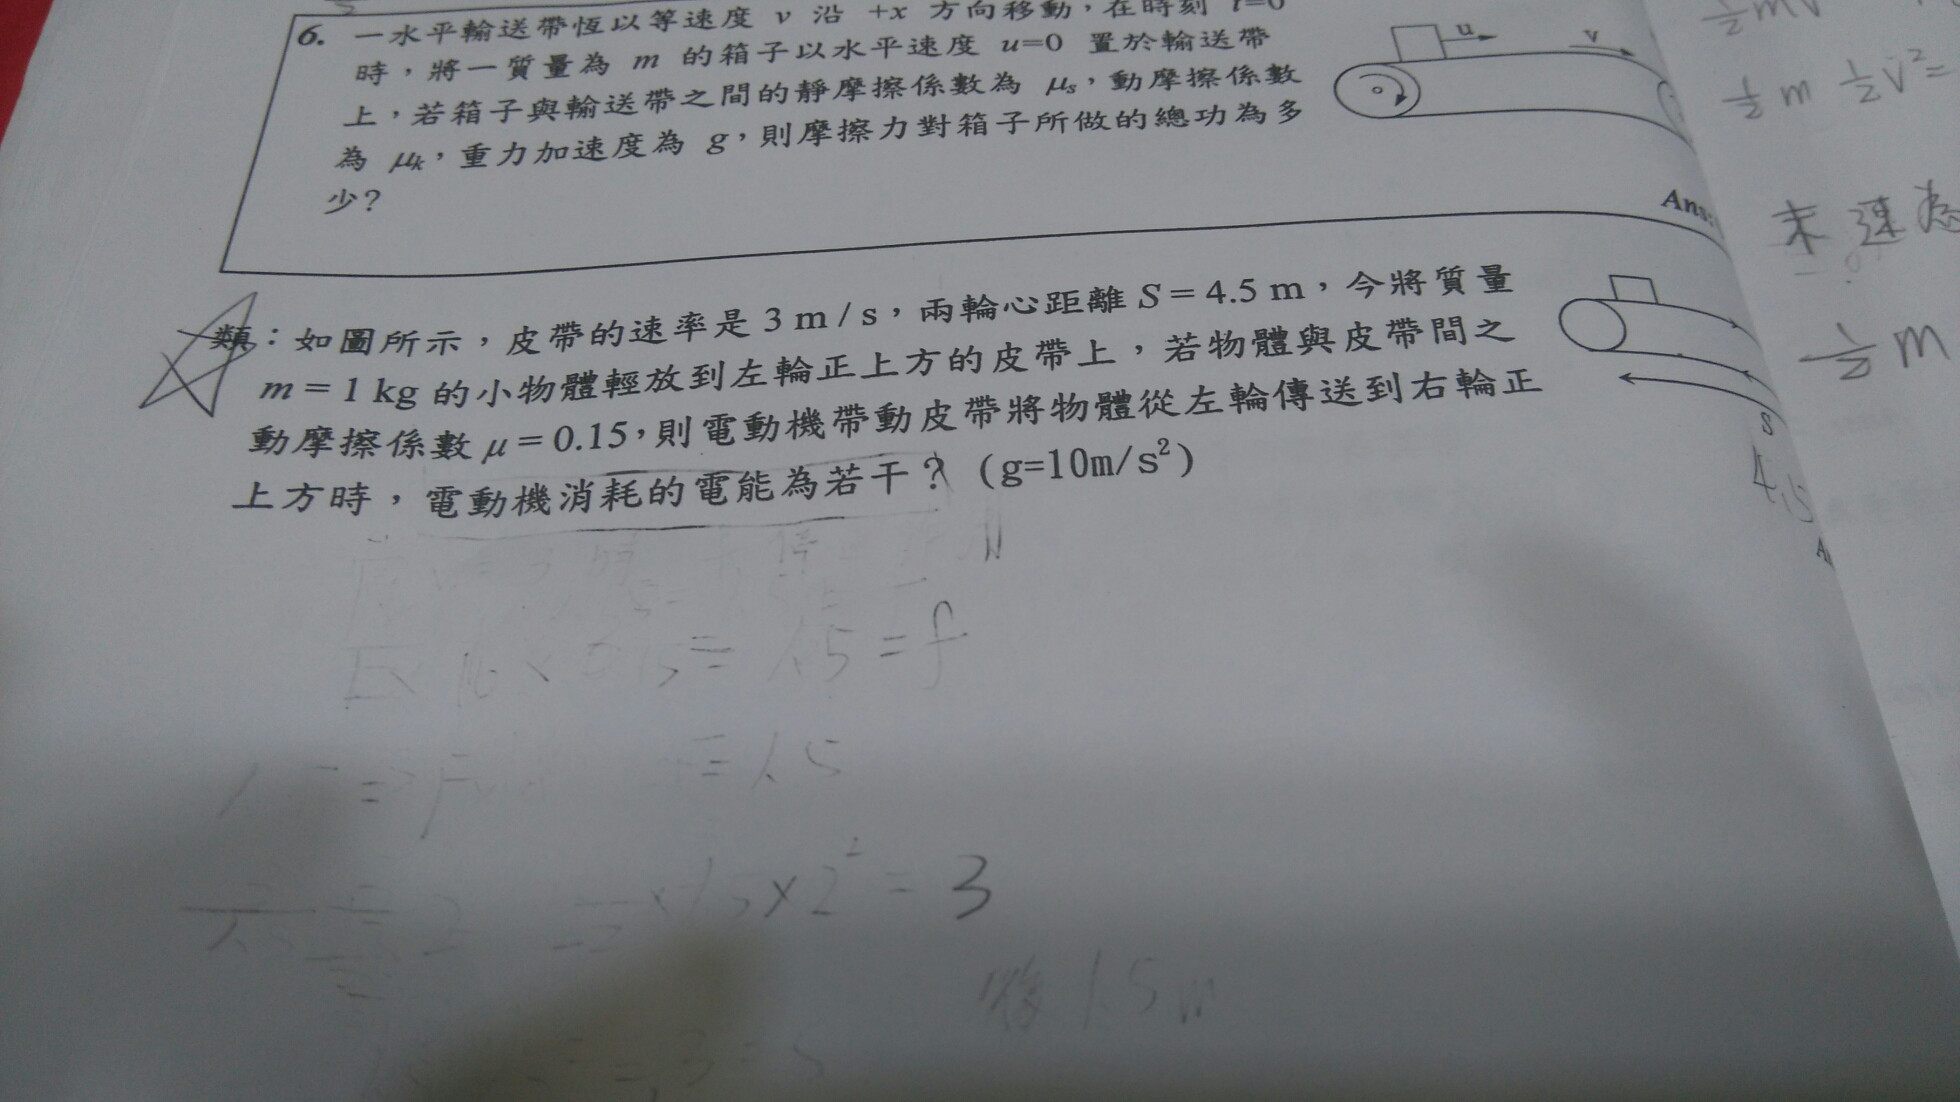 6. 一水平輸送帶恆以等速度 v 沿 +x 方向移動，在時刻 t=0
時，將一質量為 m 的箱子以水平速度 u=0 置於輸送帶
上，若箱子與輸送帶之間的靜摩擦係數為 μs，動摩擦係數
為 μk，重力加速度為 g，則摩擦力對箱子所做的總功為多
少？
u
v
Ans:
類：如圖所示，皮帶的速率是 3 m / s，兩輪心距離 S = 4.5 m，今將質量
m = 1 kg 的小物體輕放到左輪正上方的皮帶上，若物體與皮帶間之
動摩擦係數 μ = 0.15，則電動機帶動皮帶將物體從左輪傳送到右輪正
上方時，電動機消耗的電能為若干？ (g=10m/s²)
S
4.5
½ m ½ v² =
末速為
½ m
= 1.5 = f
= 1.5
×1.5×2² = 3
後 1.5 m